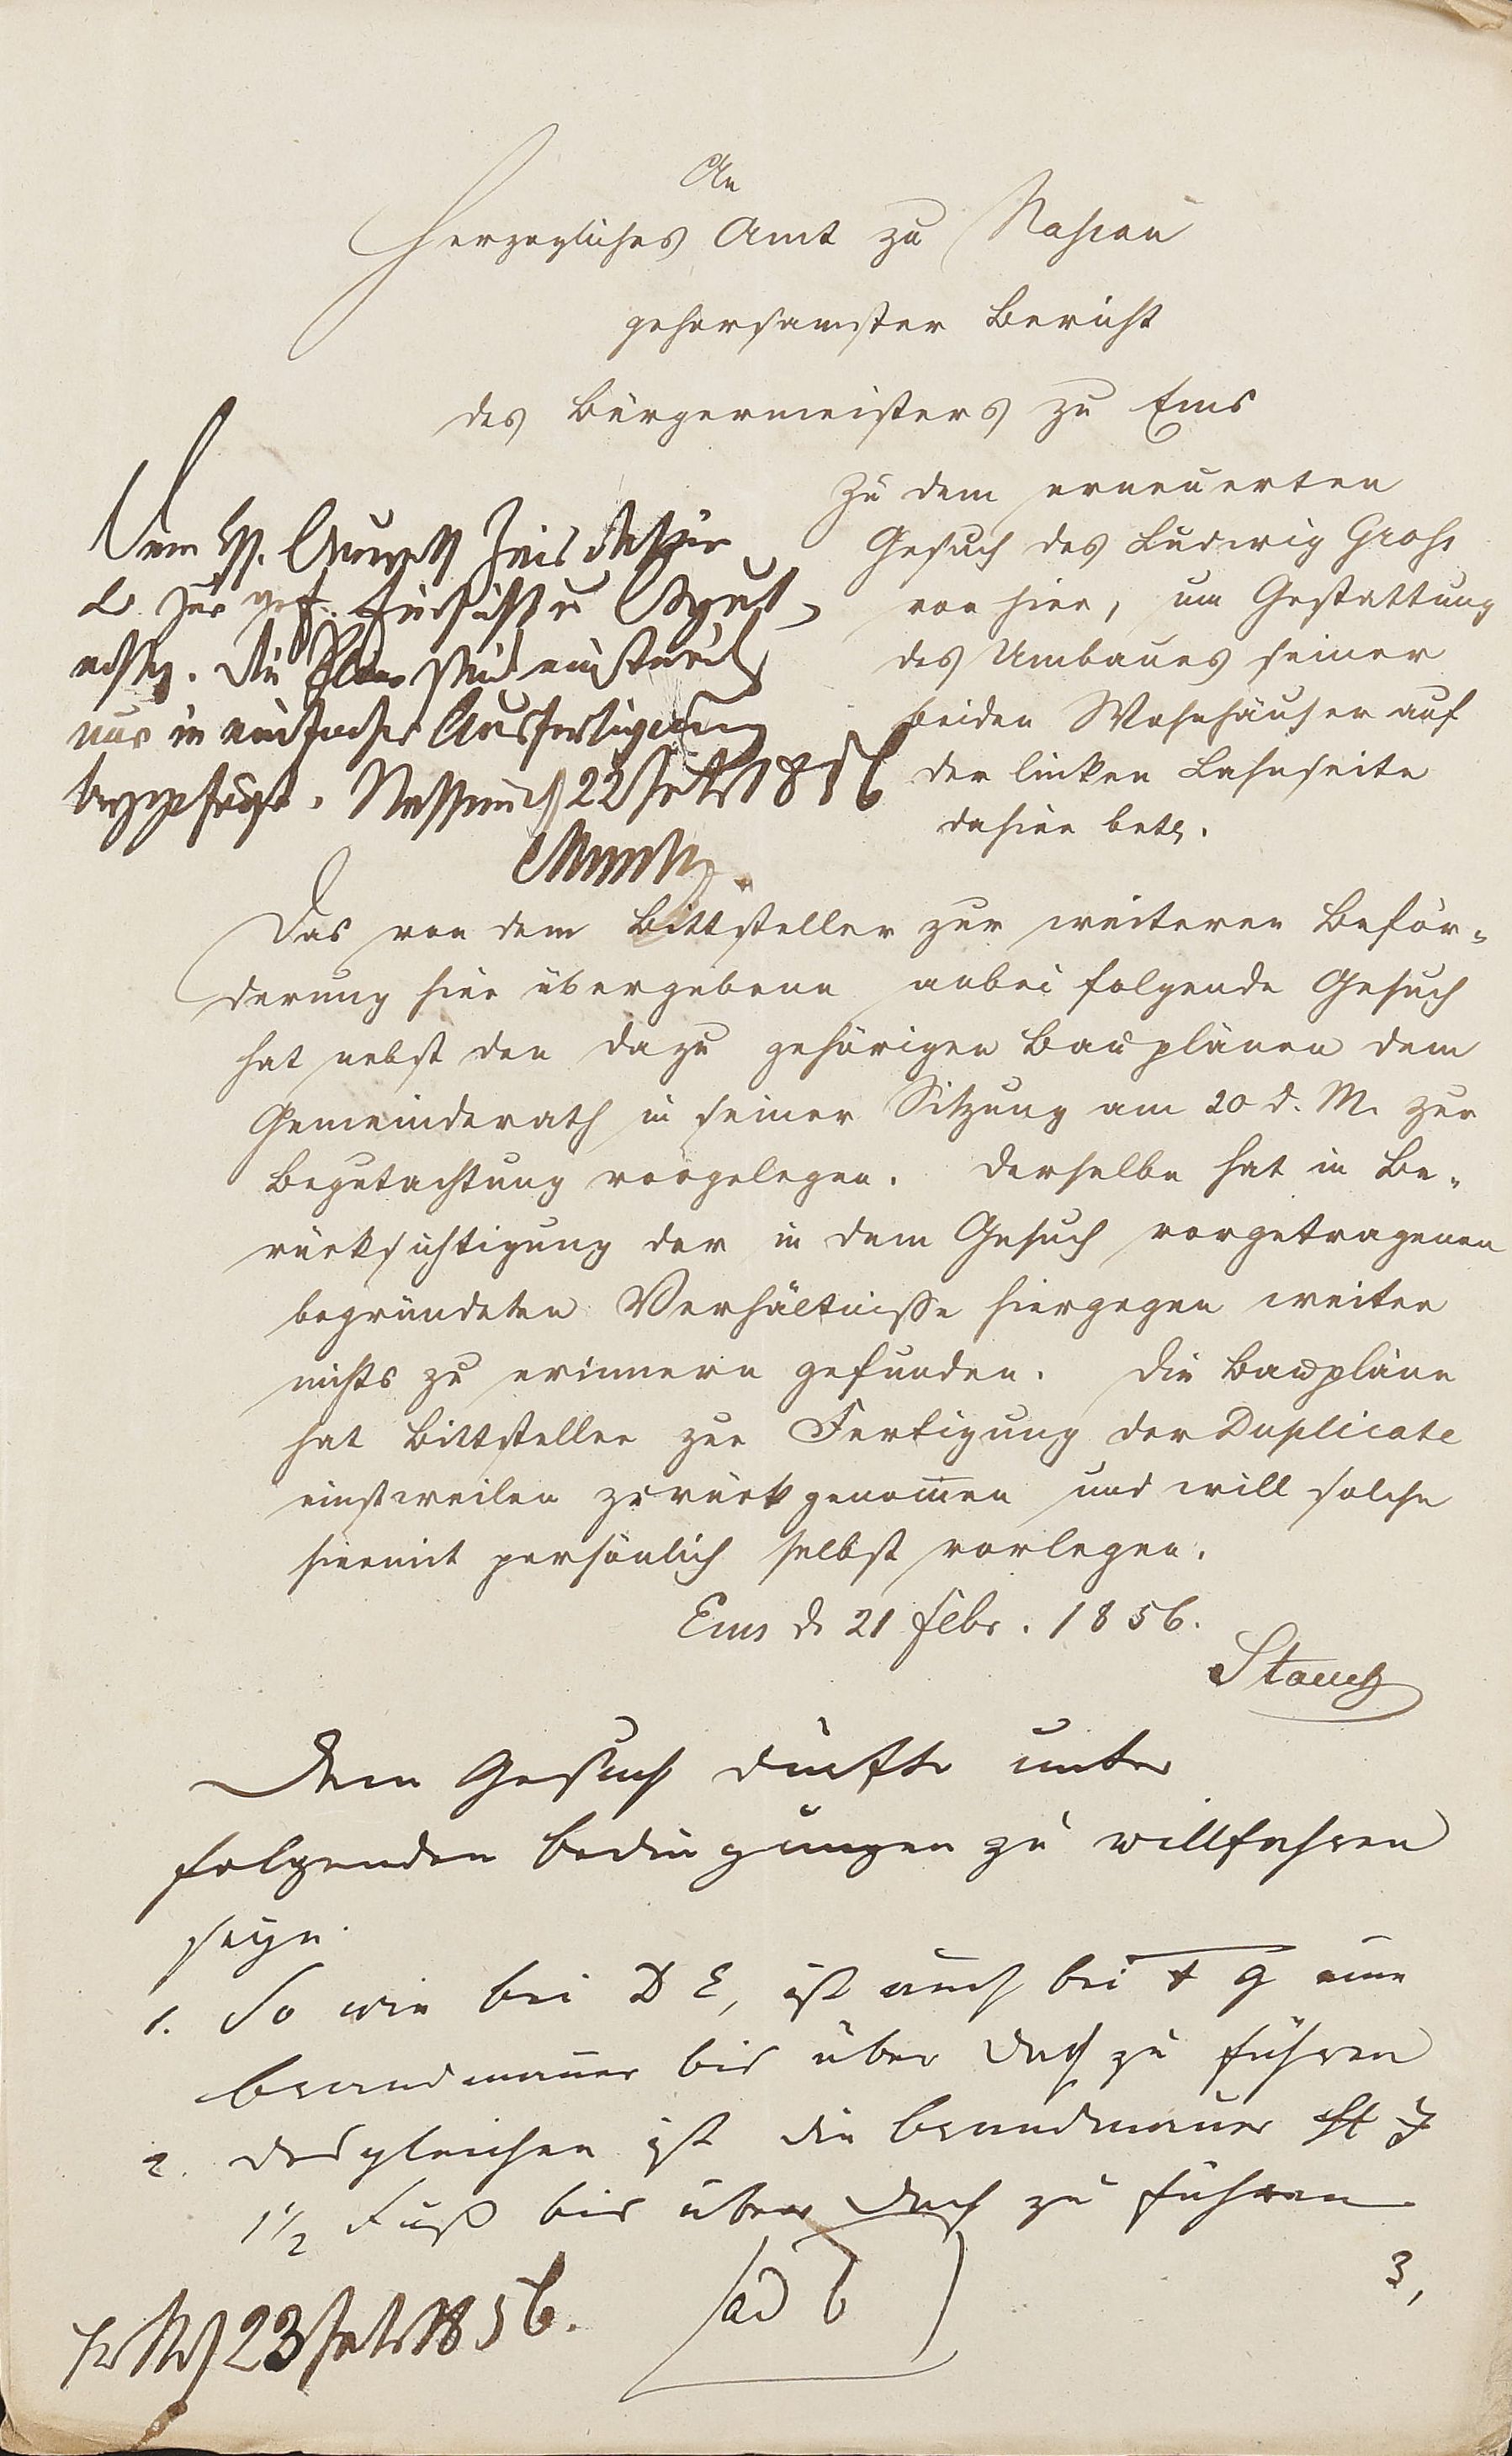 An
Herzogliches Amt zu Nassau
gehorsamster Bericht
des Bürgermeisters zu Ems
zu dem erneuerten
Gesuch des Ludwig Grohs
von hier, um Gestattung
des Umbaues seiner
beiden Wohnhäuser auf
der linken Lahnseite
dahier betr.
Dem H.
zur gef. Einsicht u. Begut-
achtg. Die Pläne sind einstweil
nur in einfacher Ausfertigung
beygefügt. Nassau 22 Febr 1856
Das von dem Bittsteller zur weiteren Beför-
derung hier übergebene anbei folgende Gesuch
hat nebst den dazu gehörigen Bauplänen dem
Gemeinderath in seiner Sitzung am 20 d. M. zur
Begutachtung vorgelegen. Derselbe hat in Be-
rücksichtigung der in dem Gesuch vorgetragenen
begründeten Verhältnisse hiergegen weiter
nichts zu erinnern gefunden. Die Baupläne
hat Bittsteller zur Fertigung der Duplicate
einstweilen zurückgenomen und will solche
hiermit persönlich selbst vorlegen.
Ems d 21 Febr. 1856.
Stauch
Dem Gesuch dürfte unter
folgenden Bedingungen zu willfahren
seyn.
1. So wie bei D E, ist auch bei F G eine
Brandmauer bis über Dach zu führen
2. desgleichen ist die Brandmauer H J
1 1/2 Fuß bis über Dach zu führen
3,
ad 6
23 Febr 1856.